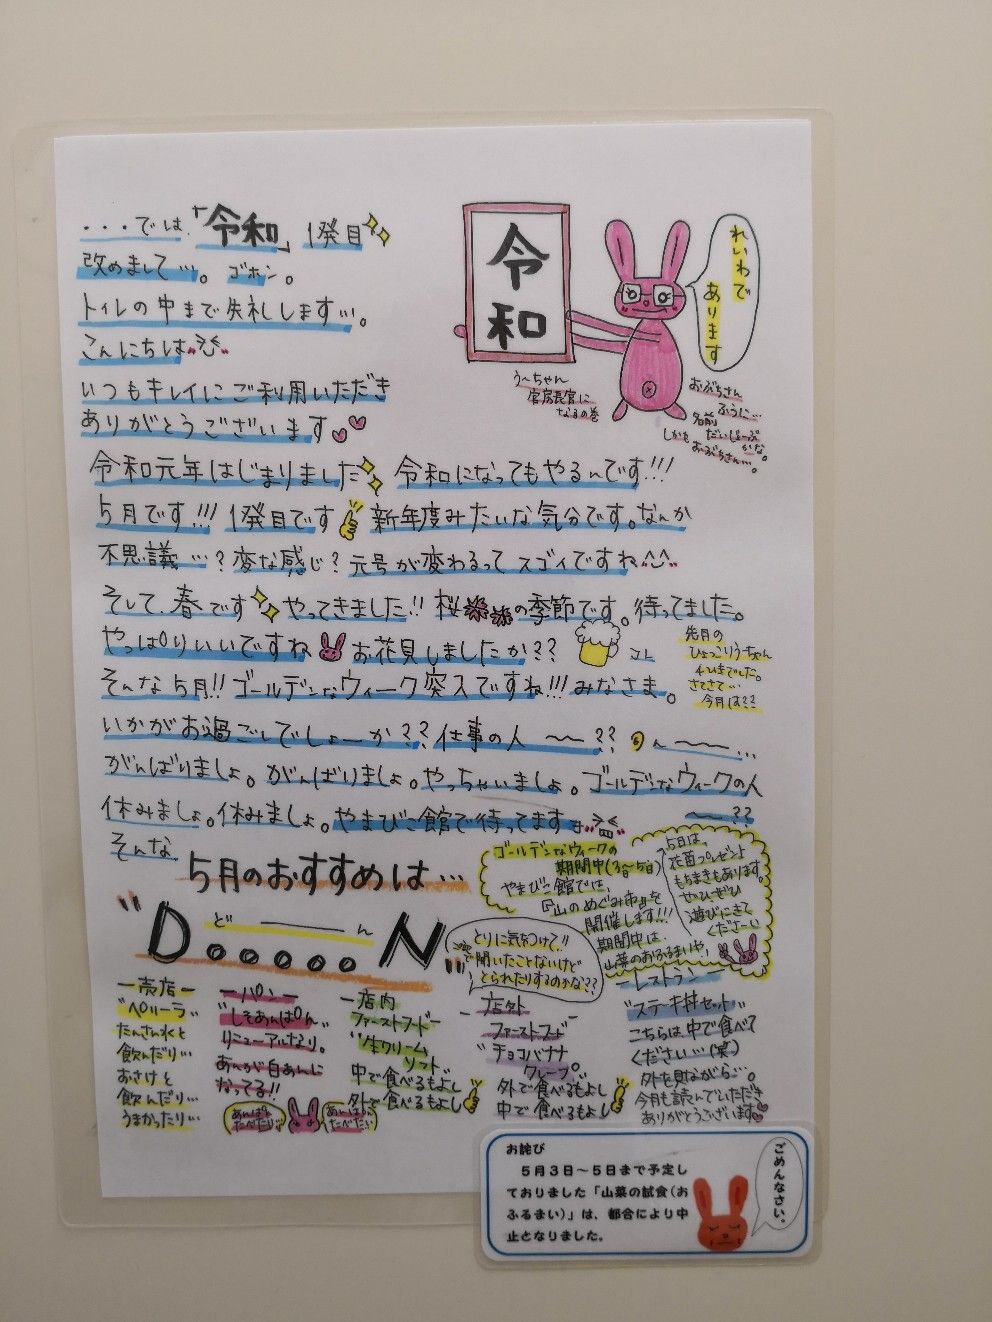 ・・・では、「令和」1発目
改めまして…。ゴホン。
トイレの中まで失礼します…。
こんにちは
いつもキレイにご利用いただき
ありがとうございます
令和
れいわで
あります
うーちゃん
官房長官に
なるの巻
おぶちさん
ふうに…
名前
しかも だいじょーぶ
かな。
おぶちさん…。
令和元年はじまりました 令和になってもやるんです!!!
5月です!!! 1発目です 新年度みたいな気分です。なんか
不思議…?変な感じ?元号が変わるってスゴイですね^^
そして、春です やってきました!! 桜の季節です。待ってました。
やっぱりいいですね お花見しましたか?? コレ
そんな5月!!ゴールデンなウィーク突入ですね!!!みなさま。
先月の
ひょっこりうーちゃん
4ひきでした。
さてさて…
今月は??
いかがお過ごしでしょーか??仕事の人 〜〜?? ん〜〜…
がんばりましょ。がんばりましょ。やっちゃいましょ。ゴールデンなウィークの人
休みましょ。休みましょ。やまびこ館で待ってます 〜〜??
そんな
5月のおすすめは…
"D。。。。。N"
ど――――ん
ゴールデンなウィークの
期間中(3日〜5日)
やまびこ館では、
『山のめぐみ市』を
開催します!!!
期間中は
山菜のおふるまいや、
5日は、
花苗プレゼント
もちまきもあります。
ぜひぜひ
遊びにきて
くださーい
とりに気をつけて!!
聞いたことないけど
とられたりするのかな??
―売店―
"ペリーラ"
たんさん水と
飲んだり…
おさけと
飲んだり…
うまかったり…
―パン―
"しそあんぱん"
リニューアルなり。
あんが白あんに
なってる!!
あんぱん
たべたい
あんぱん
たべたい
―店内
ファーストフード―
"生クリーム
ソフト"
中で食べるもよし
外で食べるもよし
―店外
ファーストフード―
"チョコバナナ
クレープ"
外で食べるもよし
中で食べるもよし
―レストラン―
"ステーキ丼セット"
こちらは中で食べて
ください…(笑)
外を見ながら…。
今月も読んでいただき
ありがとうございます
お詫び
5月3日〜5日まで予定し
ておりました「山菜の試食(お
ふるまい)」は、都合により中
止となりました。
ごめんなさい。